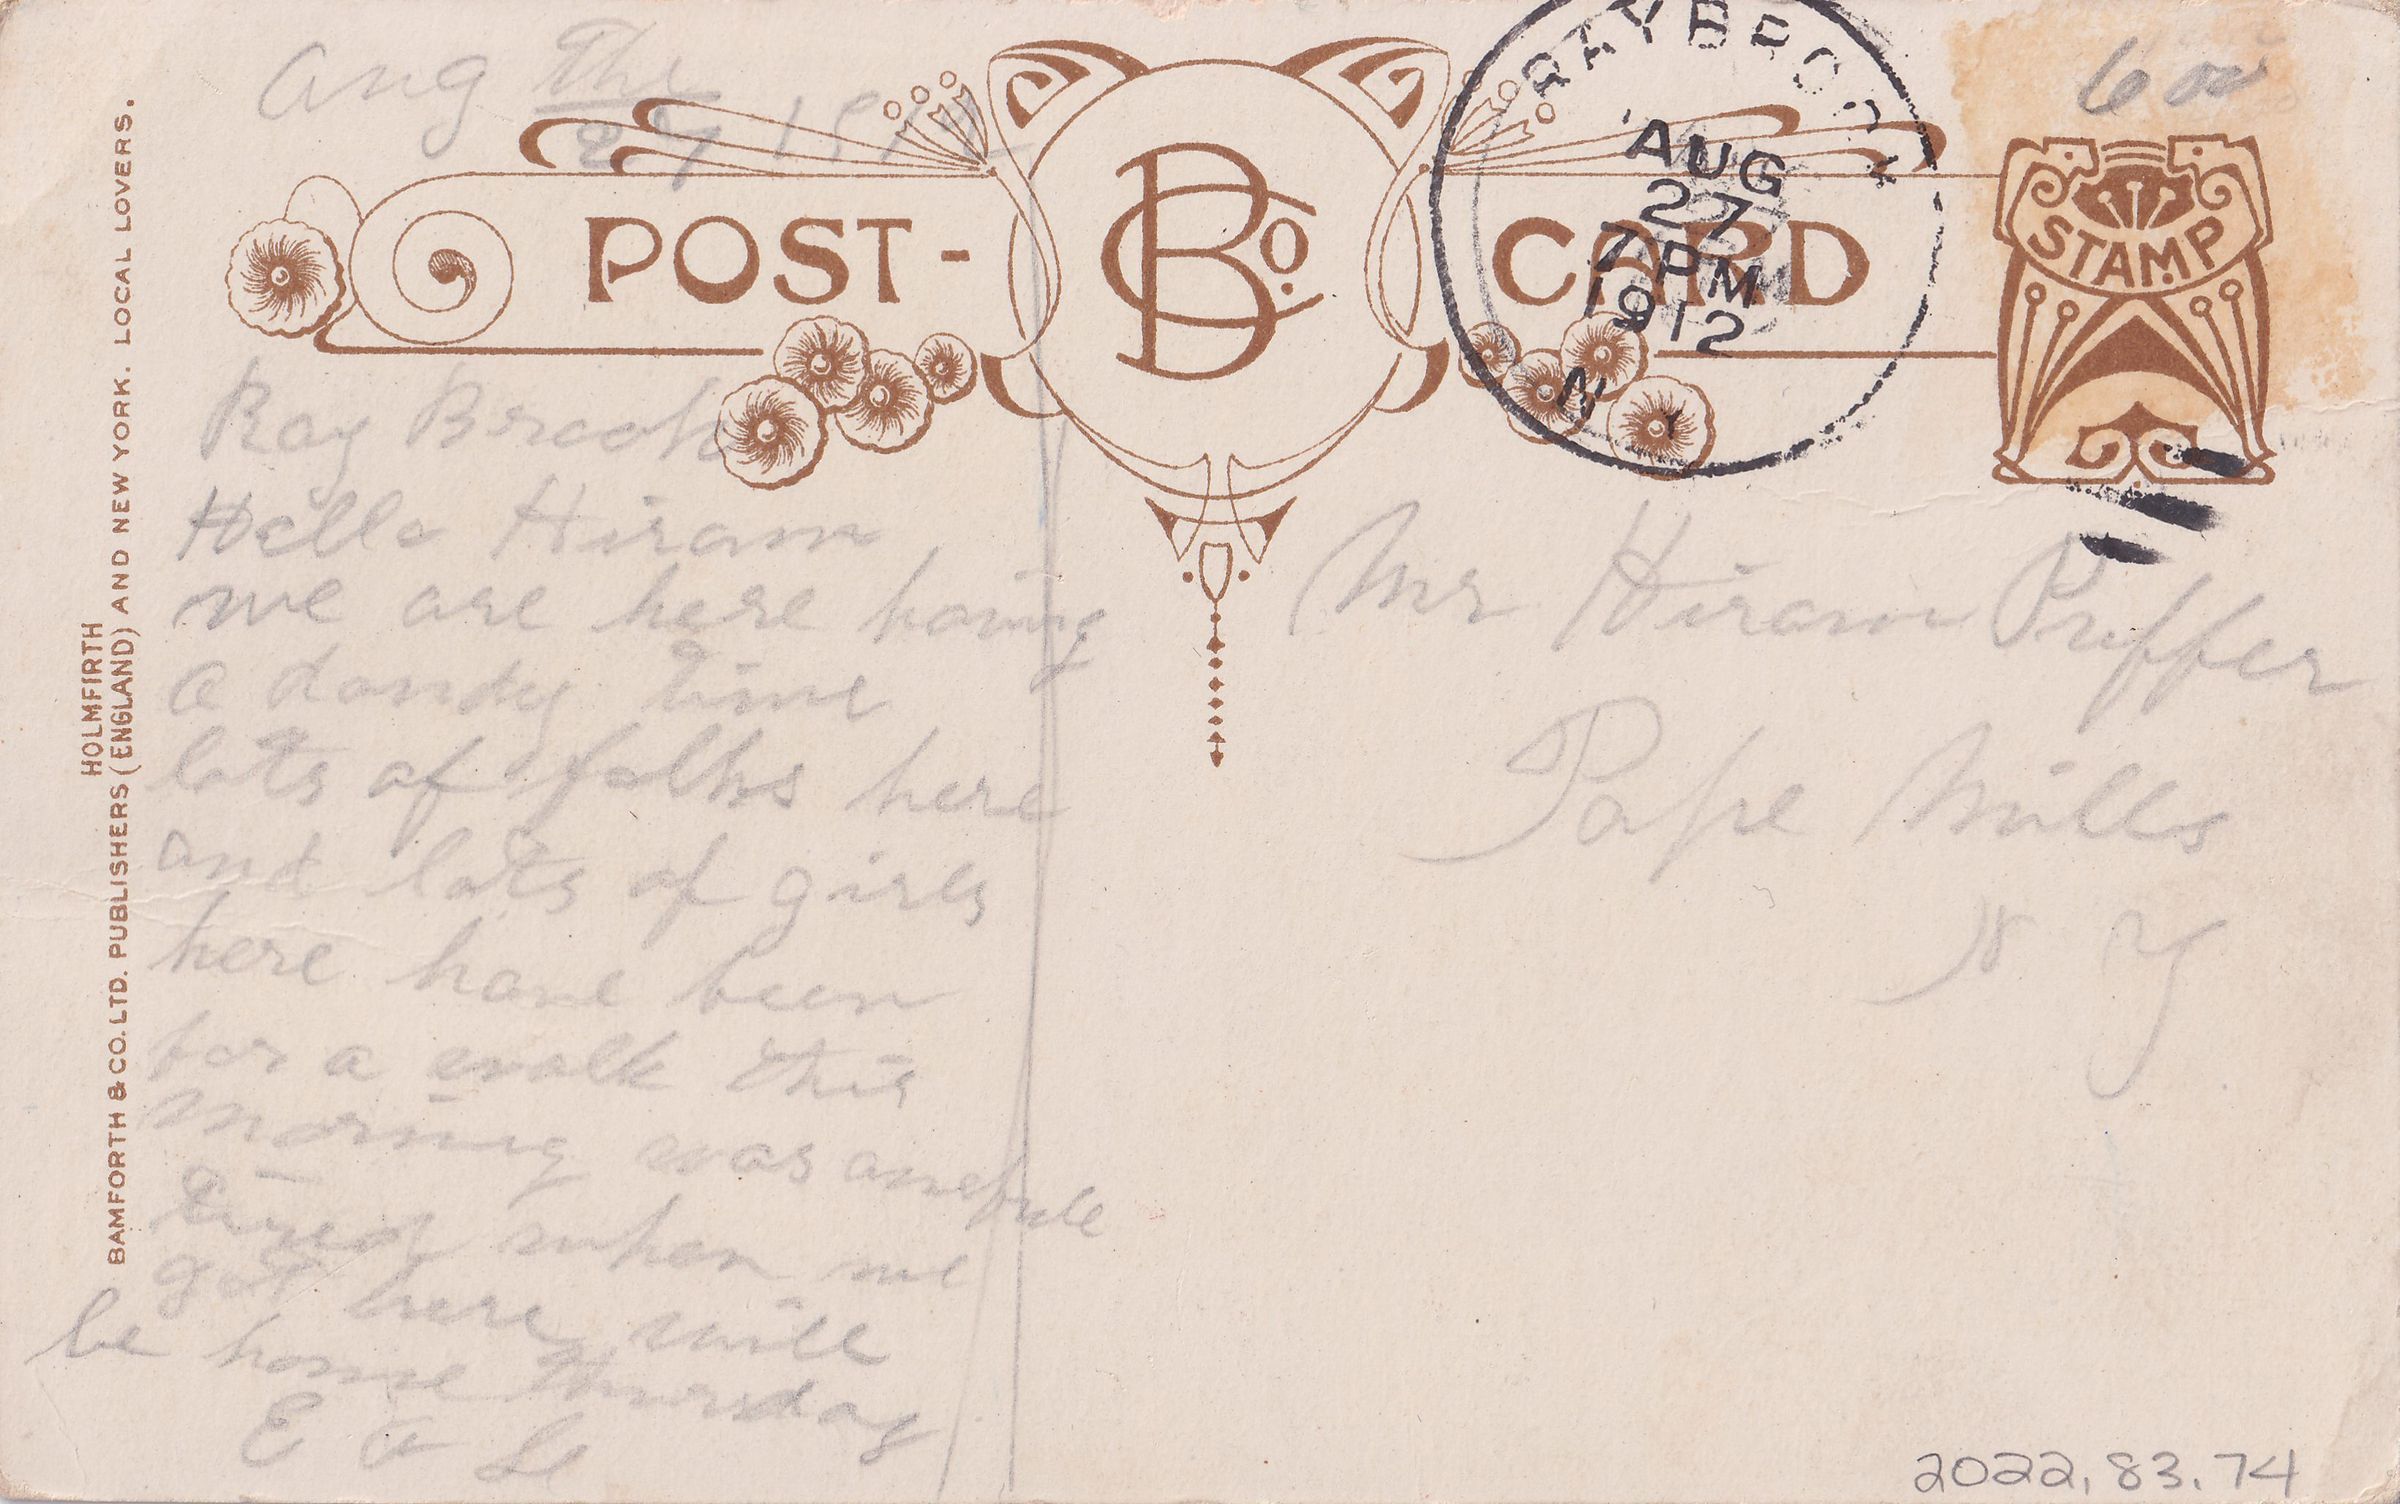 Aug the
27 1912
6 00
RAYBROOK
AUG
27
7 PM
1912
N Y
POST-CARD
B Co.
STAMP
HOLMFIRTH
BAMFORTH & CO. LTD. PUBLISHERS (ENGLAND) AND NEW YORK. LOCAL LOVERS.
Ray Brook
Hello Hiram
we are here having
a dandy time
lots of folks here
and lots of girls
here have been
for a walk this
morning was awfule
tired when we
got here will
be home Thursday
E
Mr Hiram Puffer
Pape Mills
N Y
2022.83.74